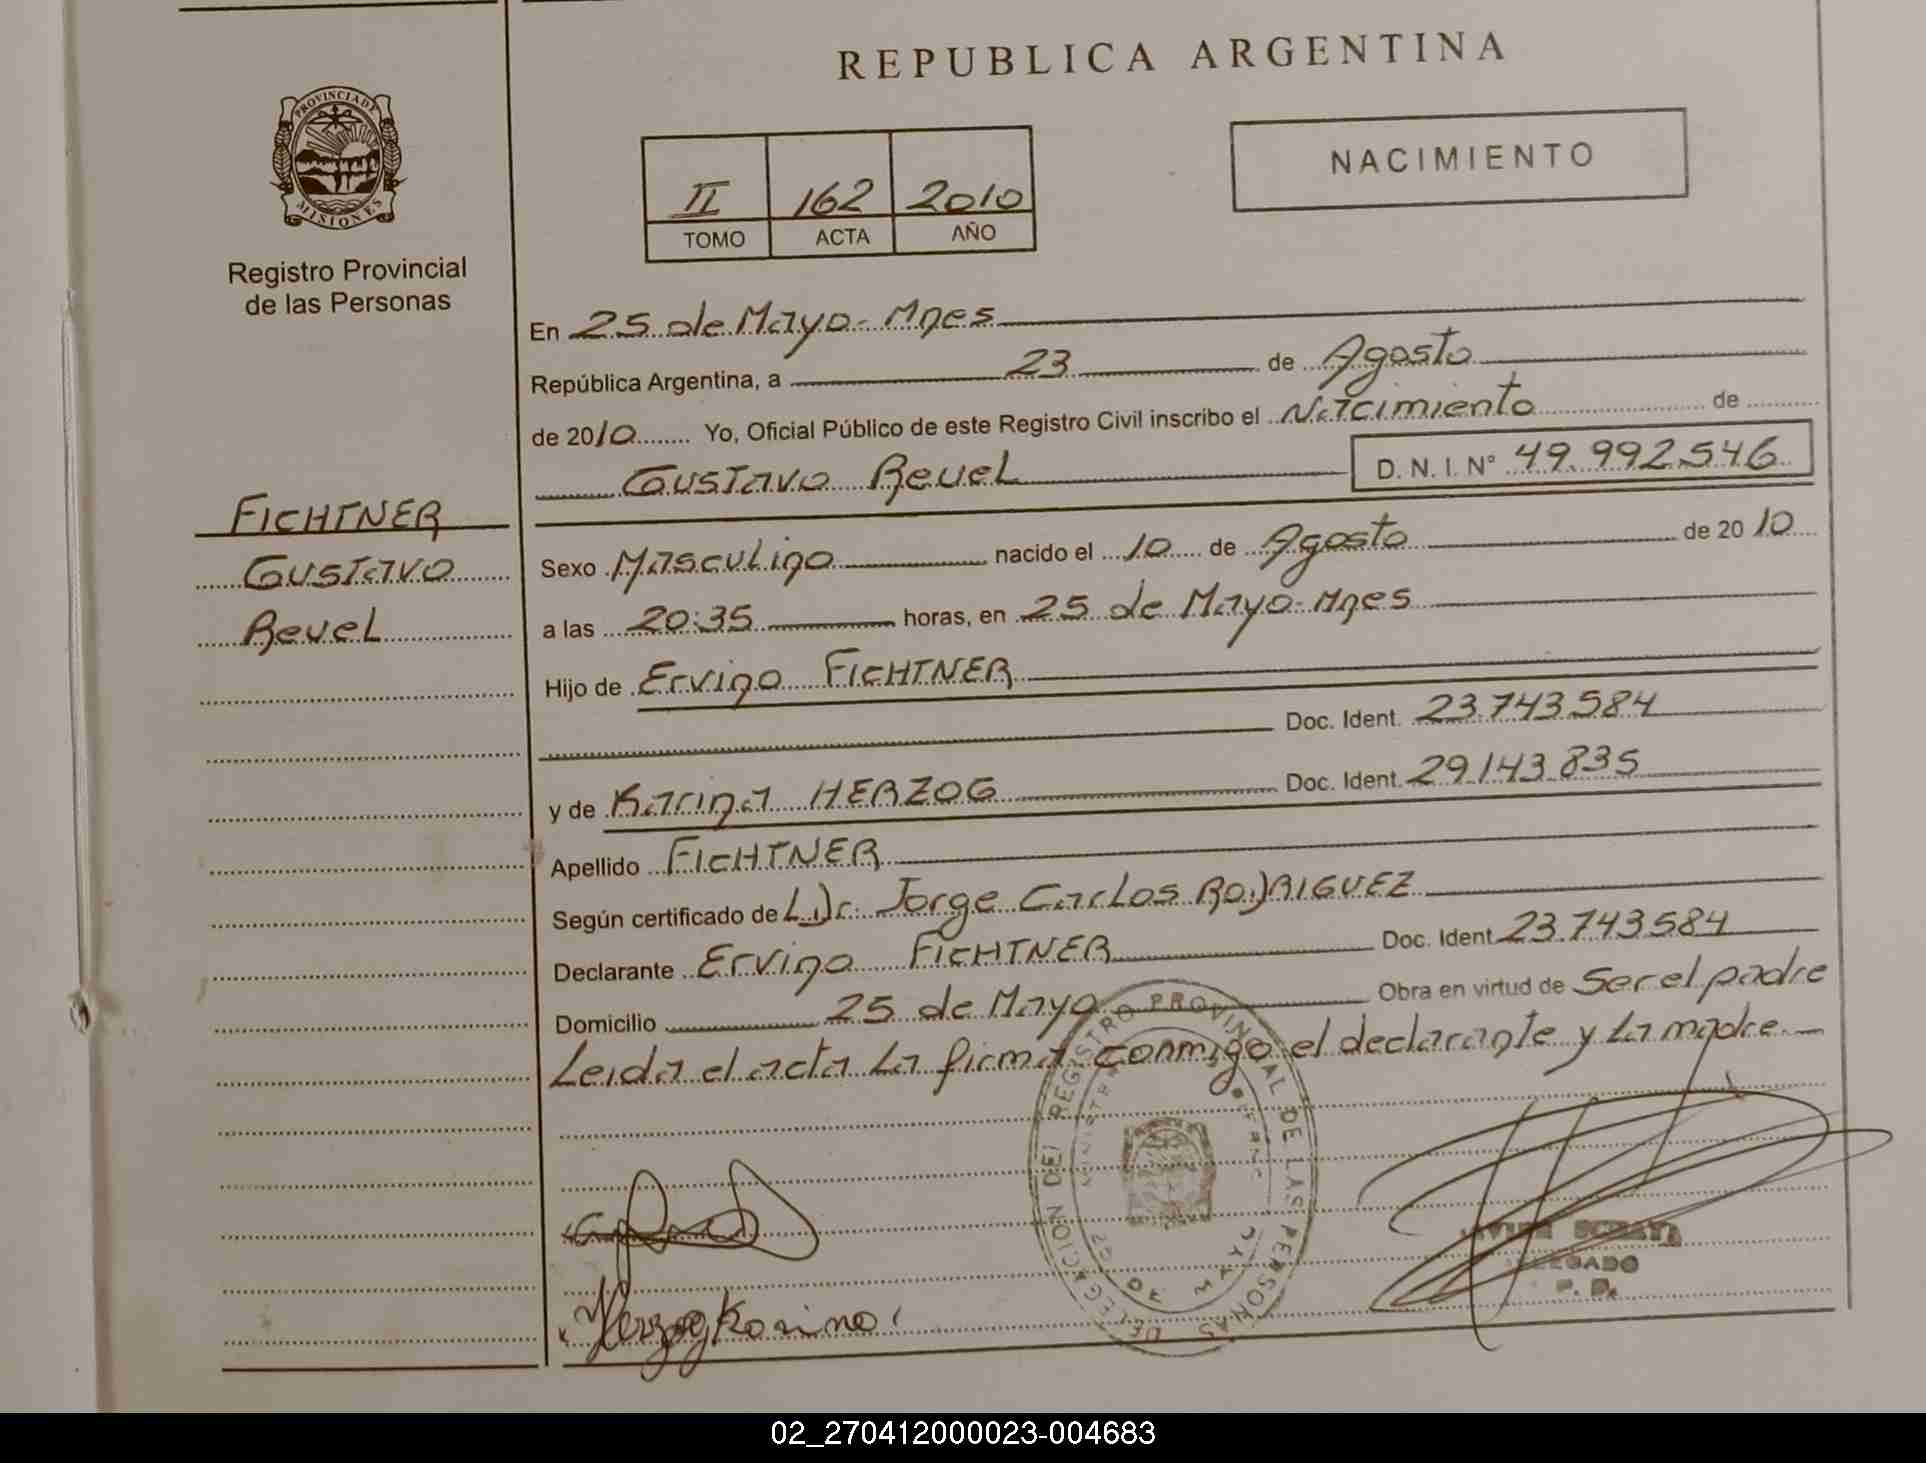 REPUBLICA ARGENTINA
PROVINCIA D
MISIONES
Registro Provincial
de las Personas
NACIMIENTO
II 162 2010
TOMO ACTA AÑO
En 25 de Mayo - Mnes
República Argentina, a 23 de Agosto
de 2010 Yo, Oficial Público de este Registro Civil inscribo el Nacimiento de
Gustavo Reuel D.N.I. N° 49.992.546
FICHTNER
Gustavo
Reuel
Sexo Masculino nacido el 10 de Agosto de 2010
a las 20:35 horas, en 25 de Mayo - Mnes
Hijo de Ervino FICHTNER
Doc. Ident. 23.743.584
y de Karina HERZOG Doc. Ident. 29.143.835
Apellido FICHTNER
Según certificado de Dr. Jorge Carlos RODRIGUEZ
Declarante Ervino FICHTNER Doc. Ident 23.743.584
Domicilio 25 de Mayo Obra en virtud de Ser el padre
Leida el acta La firma conmigo el declarante y La madre
DELEGACION DEL REGISTRO PROVINCIAL DE LAS PERSONAS
25 DE MAYO
Herzog Karina
DELEGADO
P. D.
02_270412000023-004683